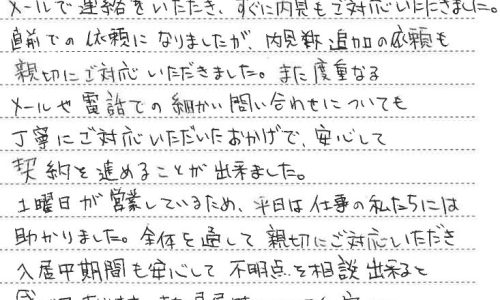 メールで連絡をいただき、すぐに内見もご対応いただきました。
直前での依頼になりましたが、内見数追加の依頼も
親切にご対応いただきました。また度重なる
メールや電話での細かい問い合わせについても
丁寧にご対応いただいたおかげで、安心して
契約を進めることが出来ました。
土曜日が営業しているため、平日は仕事の私たちには
助かりました。全体を通して親切にご対応いただき
入居中期間も安心して不明点を相談出来ると